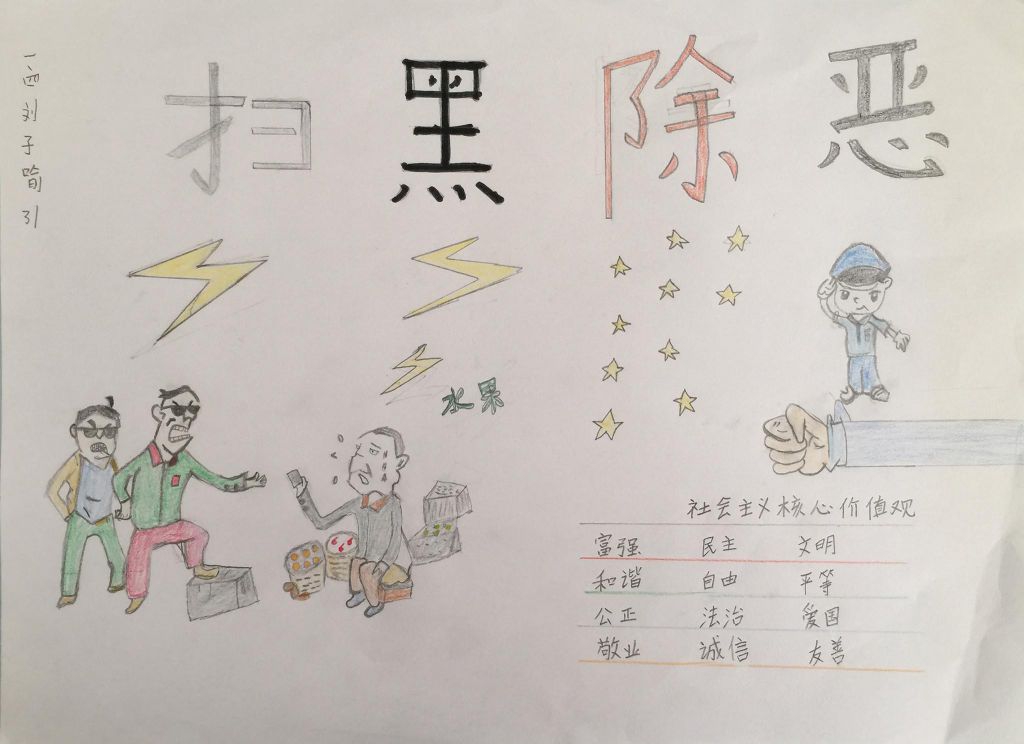 扫黑除恶
一四刘子喻31
水果
社会主义核心价值观
富强 民主 文明
和谐 自由 平等
公正 法治 爱国
敬业 诚信 友善